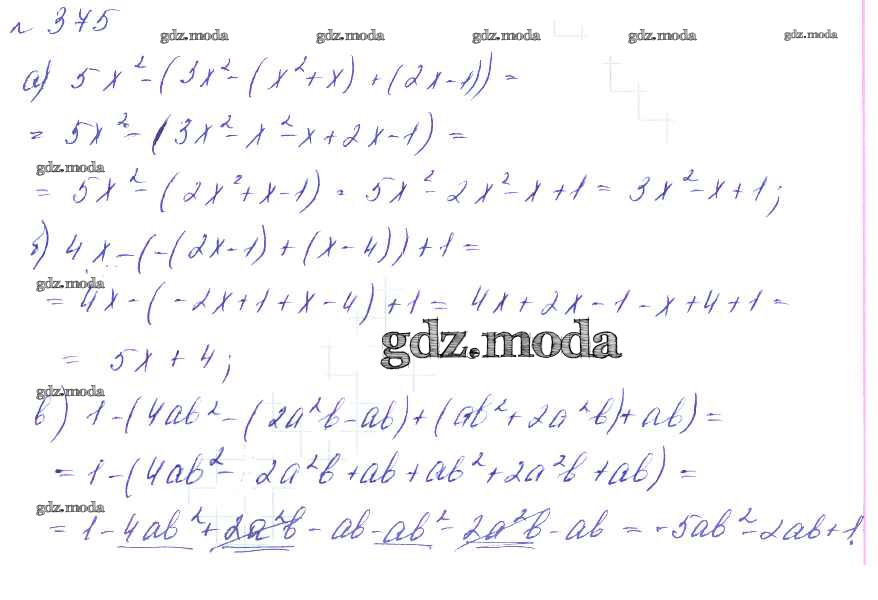 № 375
gdz.moda gdz.moda gdz.moda gdz.moda gdz.moda
а) 5x² - (3x² - (x² + x) + (2x - 1)) =
= 5x² - (3x² - x² - x + 2x - 1) =
gdz.moda
= 5x² - (2x² + x - 1) = 5x² - 2x² - x + 1 = 3x² - x + 1;
б) 4x - (-(2x - 1) + (x - 4)) + 1 =
gdz.moda
= 4x - (-2x + 1 + x - 4) + 1 = 4x + 2x - 1 - x + 4 + 1 =
gdz.moda
= 5x + 4;
gdz.moda
в) 1 - (4ab² - (2a²b - ab) + (ab² + 2a²b) + ab) =
= 1 - (4ab² - 2a²b + ab + ab² + 2a²b + ab) =
gdz.moda
= 1 - 4ab² + 2a²b - ab - ab² - 2a²b - ab = -5ab² - 2ab + 1.